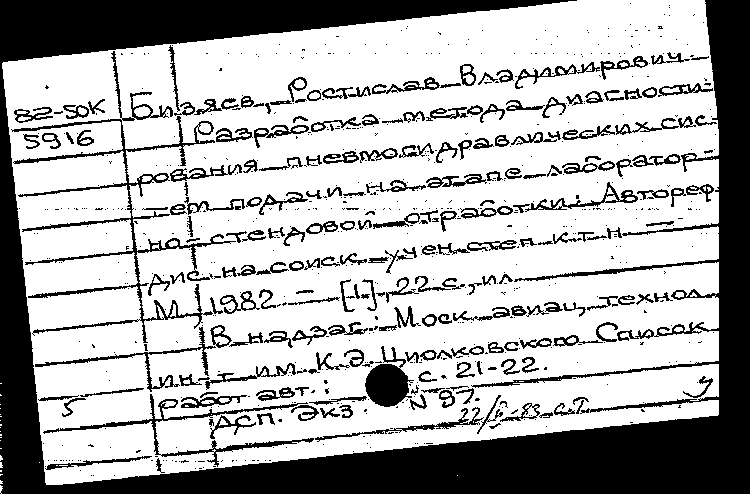 82-50К
5916
Бизяев, Ростислав Владимирович
Разработка метода диагности-
рования пневмогидравлических сис-
тем подачи на этапе лаборатор-
но-стендовой отработки: Автореф
дис. на соиск. учен степ к.т.н. —
М, 1982 - [1], 22 с., ил.
В надзаг.: Моск авиац. технол
ин-т им. К.Э. Циолковского Список
работ авт.: с. 21-22.
Асп. Экз. N 97.
5
22/II-83 с.т.
у